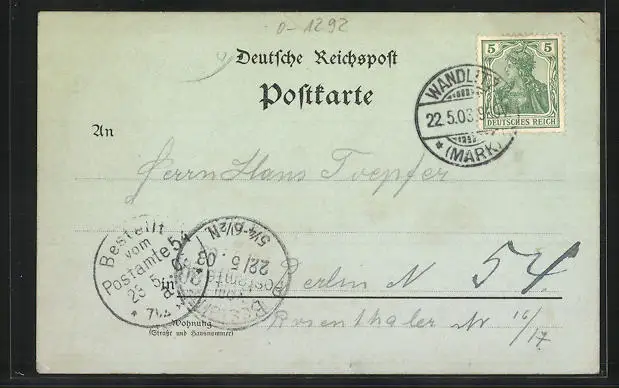 0-1292
Deutsche Reichspost
Postkarte
5 5
DEUTSCHES REICH
WANDLITZ
22.5.03.
* (MARK)
An
Herrn Hans Toepfer
Bestellt
vom
Postamte 54
23 5
* 7¼
5¼-6½N
22/5 03
Bestellt
vom
Postamte
in Berlin N 54
Wohnung
(Straße und Hausnummer)
Rosenthaler Str 16/17